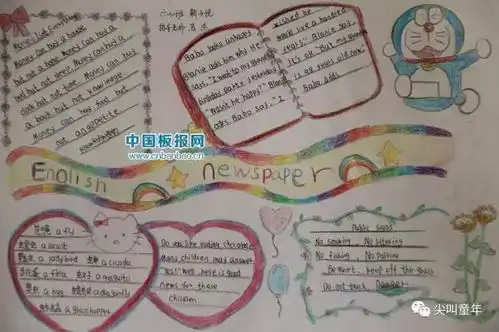 Money Isn't Everything
Money can buy a house
but not a home. Money can buy a
bed but not rest. Money can buy a
clock but not time. Money can buy
a book but not knowledge
Money can buy food but
not an appetite
Babo looks unhappy
Blanie asks him why. He
says, "I went to my friend's
birthday party yesterday
Blanie
asks. Babo says: "I
wished he
have live a hundred
years." Blanie says,
It's ok "But my friend's
is 99 years old now.
Babo adds.
中国板报网
www.cnbanbao.cn
English newspaper
a fly
a ladybird a cicada
a flea a mosquito
a bee a dragonfly
a grasshopper
Do you like eating chocolate
Many children may answer
"Yes!" Well, here is good
news for these
children.
Public Signs
No smoking, No littering
No fishing, No Parking
Be quiet, keep off the grass
Do not touch, Danger!
尖叫童年